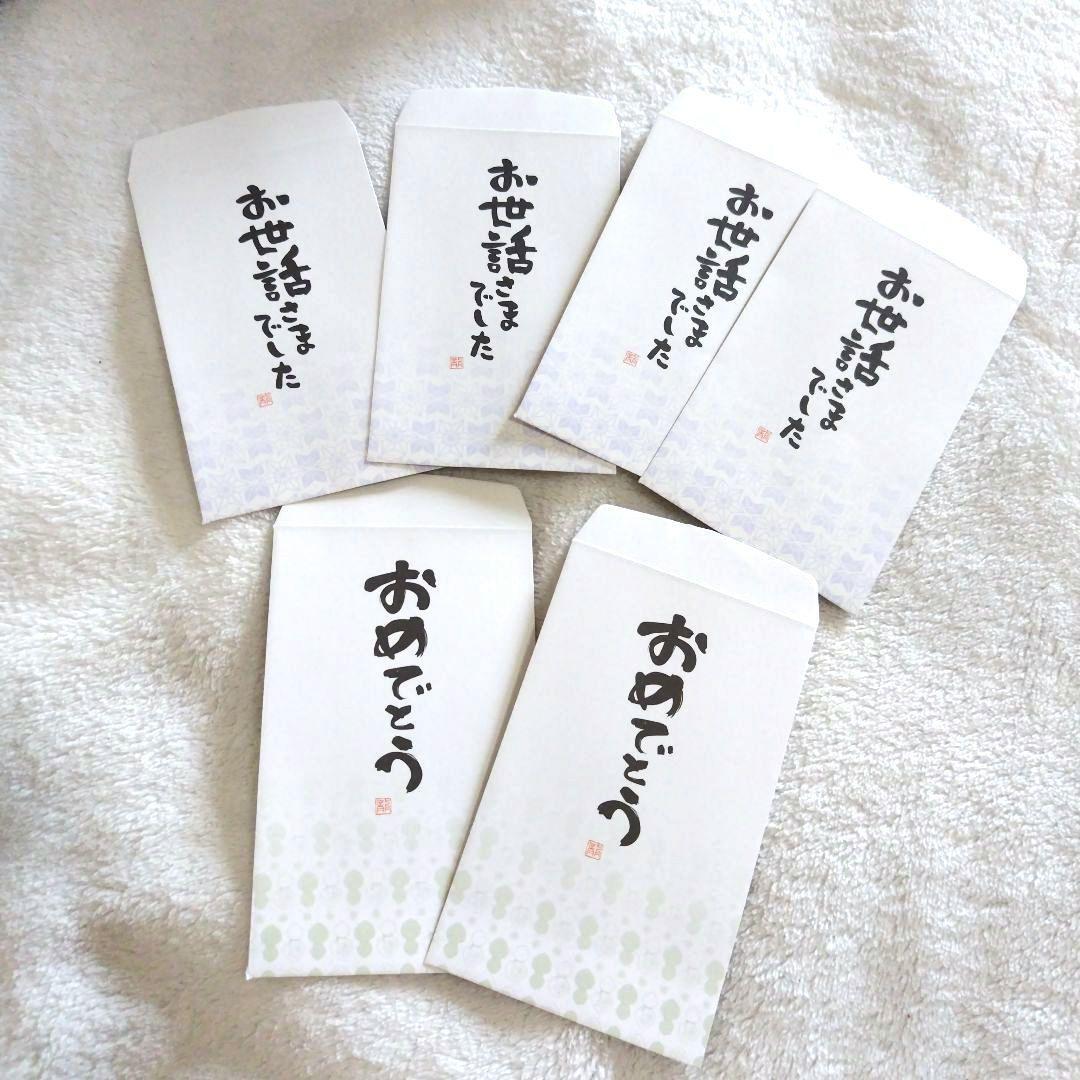 お世話さまでした
お世話さまでした
お世話さまでした
お世話さまでした
おめでとう
おめでとう